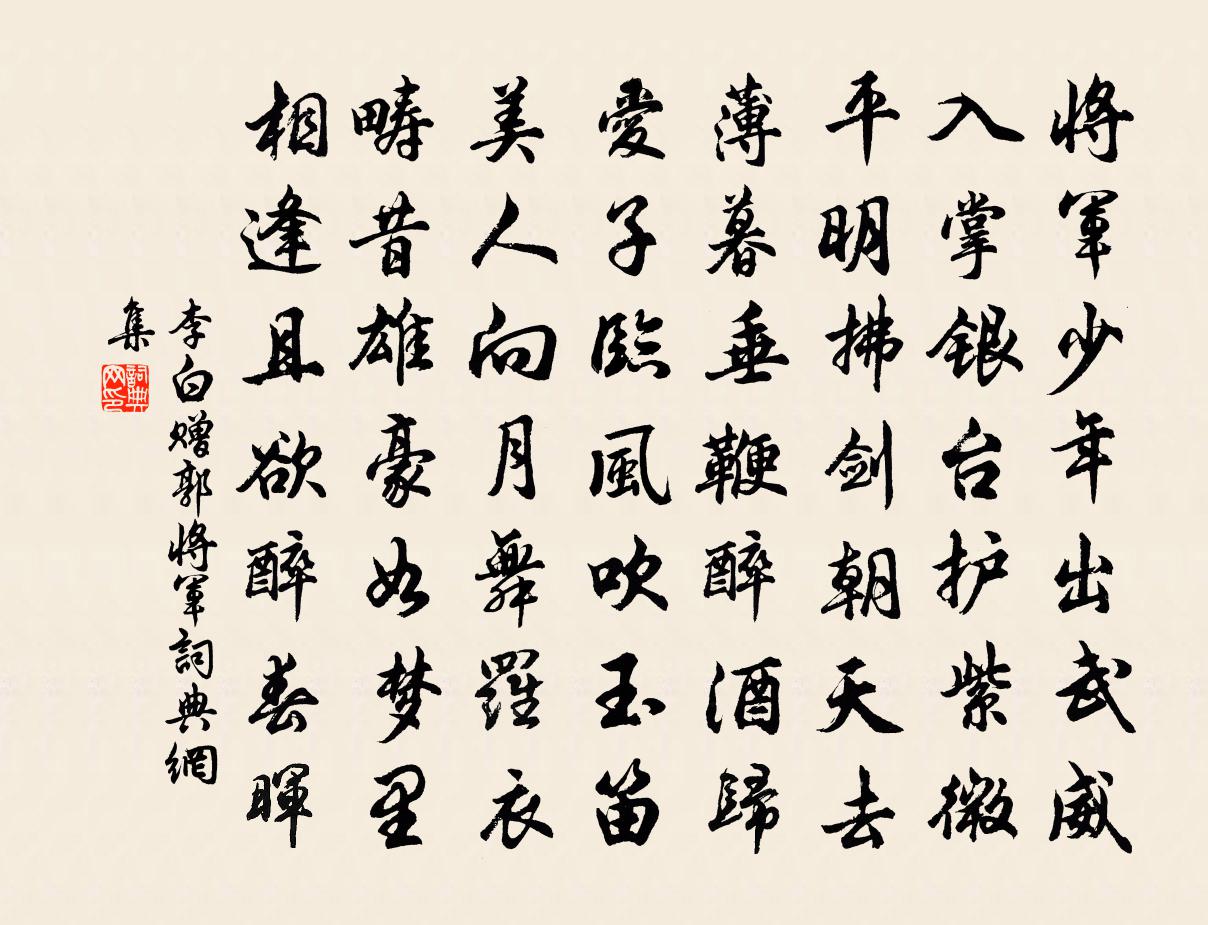 將軍少年出武威
入掌銀台护紫微
平明拂剑朝天去
薄暮垂鞭醉酒歸
愛子臨風吹玉笛
美人向月舞羅衣
疇昔雄豪如梦里
相逢且欲醉春暉
李白赠郭將軍詞典網
集
詞典
网印